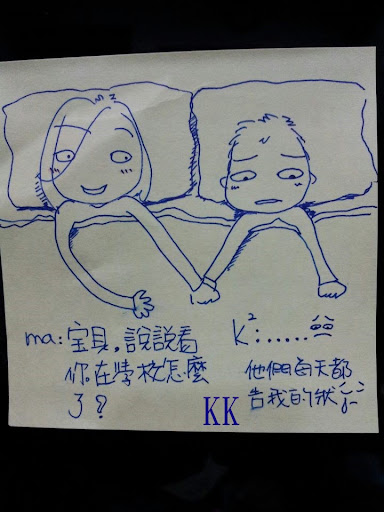 ma:宝貝,說說看
你在學校怎麼
了?
K²:.....
他們每天都
告我的狀
KK